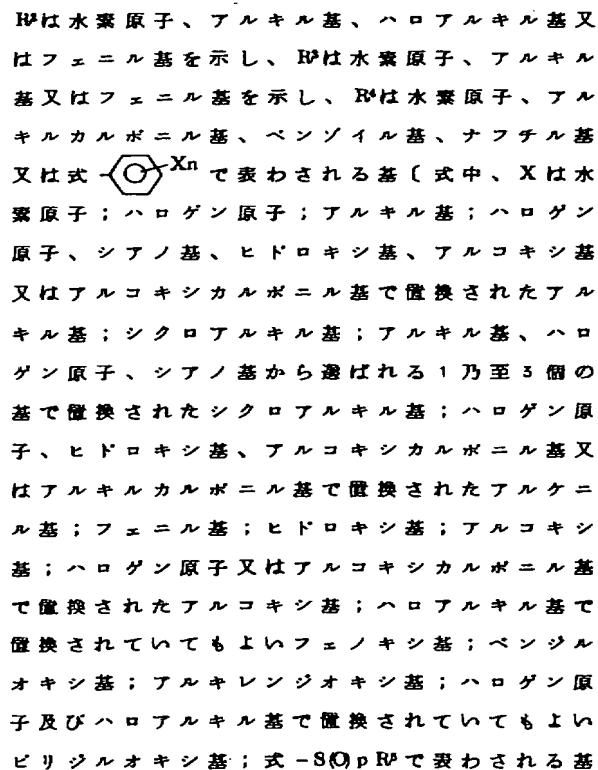 R²は水素原子、アルキル基、ハロアルキル基又
はフェニル基を示し、R³は水素原子、アルキル
基又はフェニル基を示し、R⁴は水素原子、アル
キルカルボニル基、ベンゾイル基、ナフチル基
又は式 Xn で表わされる基〔式中、Xは水
素原子；ハロゲン原子；アルキル基；ハロゲン
原子、シアノ基、ヒドロキシ基、アルコキシ基
又はアルコキシカルボニル基で置換されたアル
キル基；シクロアルキル基；アルキル基、ハロ
ゲン原子、シアノ基から選ばれる1乃至3個の
基で置換されたシクロアルキル基；ハロゲン原
子、ヒドロキシ基、アルコキシカルボニル基又
はアルキルカルボニル基で置換されたアルケニ
ル基；フェニル基；ヒドロキシ基；アルコキシ
基；ハロゲン原子又はアルコキシカルボニル基
で置換されたアルコキシ基；ハロアルキル基で
置換されていてもよいフェノキシ基；ベンジル
オキシ基；アルキレンジオキシ基；ハロゲン原
子及びハロアルキル基で置換されていてもよい
ピリジルオキシ基；式-S(O)pR⁵で表わされる基